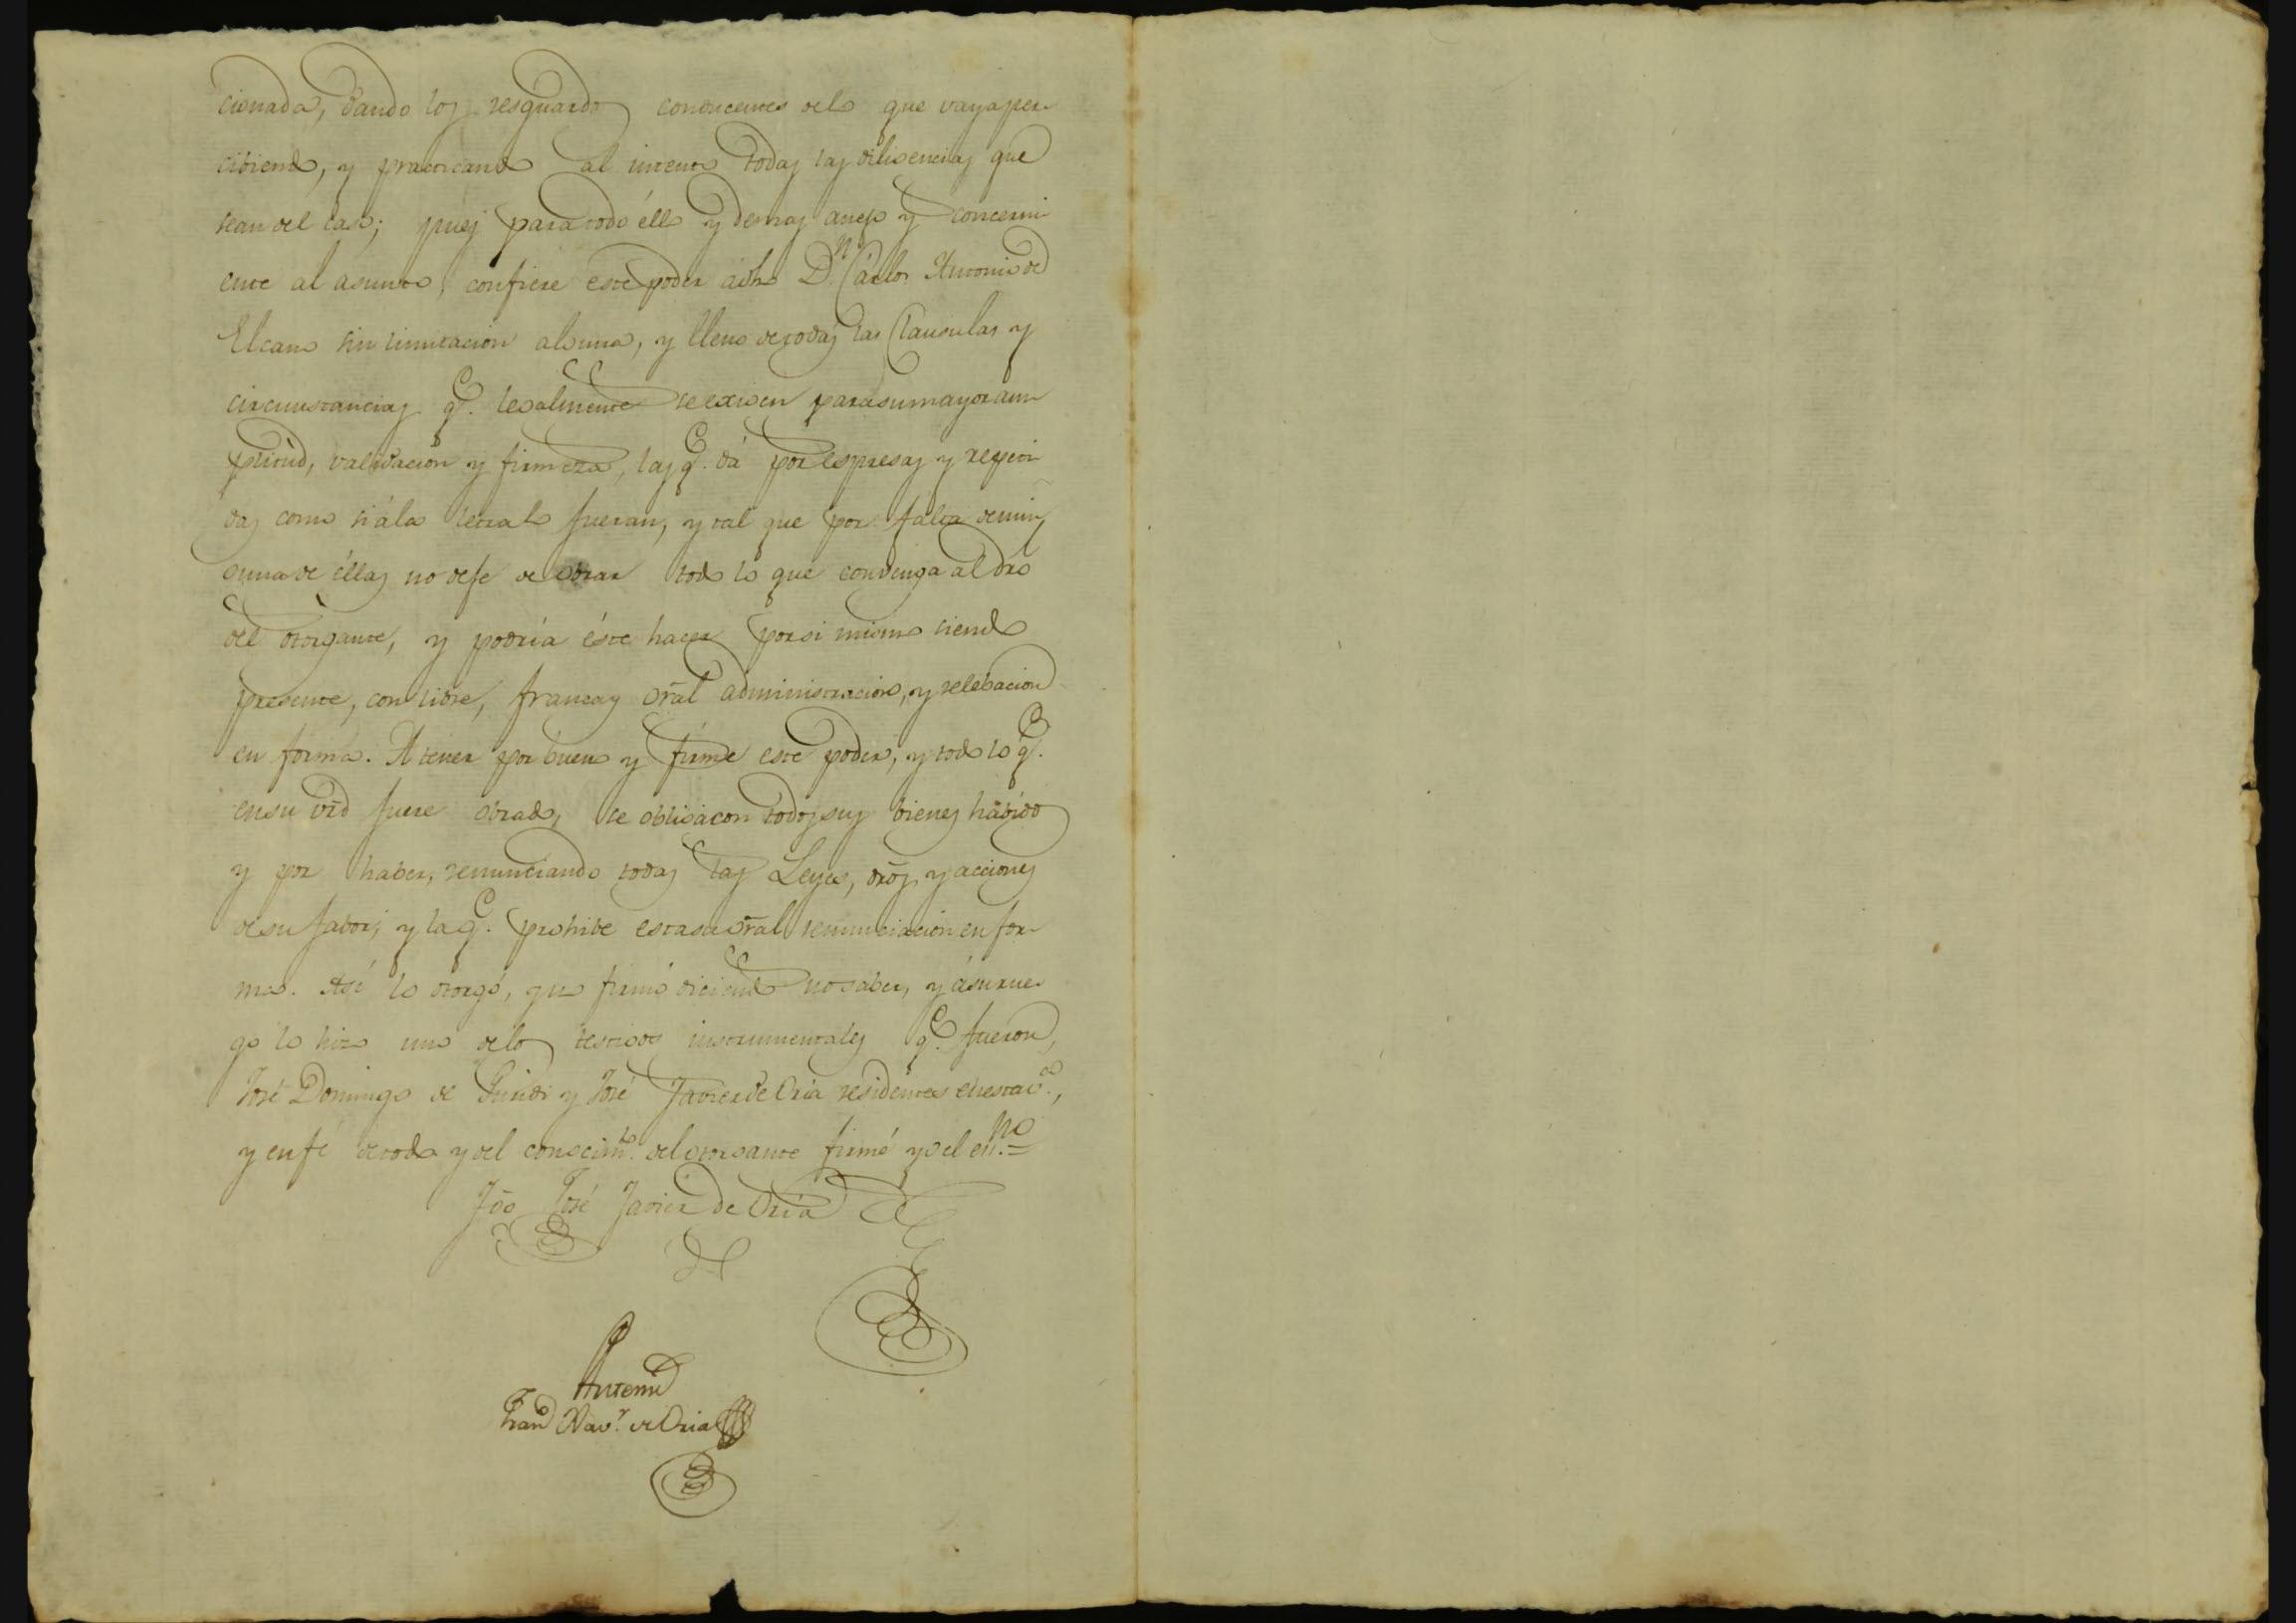 cionada, dando los resguardos conducentes delo que vaya per-
cibiendo, y practicando al intento todas las diligencias que
sean del caso; pues para todo éllo y demas anejo y concerni-
ente al asunto, confiere este poder a dho D.n Cárlos Antonio de
Elcano sin limitacion alguna, y lleno de todas las Clausulas y
circunstancias q.e legalmente se exigen para su mayor am-
plitud, validacion y firmeza, las q.e dá por espresas y repeti-
das como si ála letra lo fueran, y tal que por falta de nin-
guna de éllas no deje de obrar todo lo que convenga al dro
del otorgante, y podría éste hacer por si mismo siendo
presente, con libre, franca y gral administracion, y relebacion
en forma. A tener por bueno y firme este poder, y todo lo q.e
en su vrd fuere obrado, se obliga con todos sus bienes habidos
y por haber, renunciando todas las Leyes, dros, y acciones
de su fabor, y la q.e prohibe esta gral renunciacion en for-
ma. Asi lo otorgó, y no firmó diciendo no saber, y á su rue-
go lo hizo uno delos testigos instrumentales q.e fueron,
José Domingo de y José Javier de Oria residentes en esta v.a,
y en fé de todo y del conocim.to del otorgante firmé yo el en.no =
Tgo José Javier de Oria
Antemi
Fran.co Xav.r de Oria